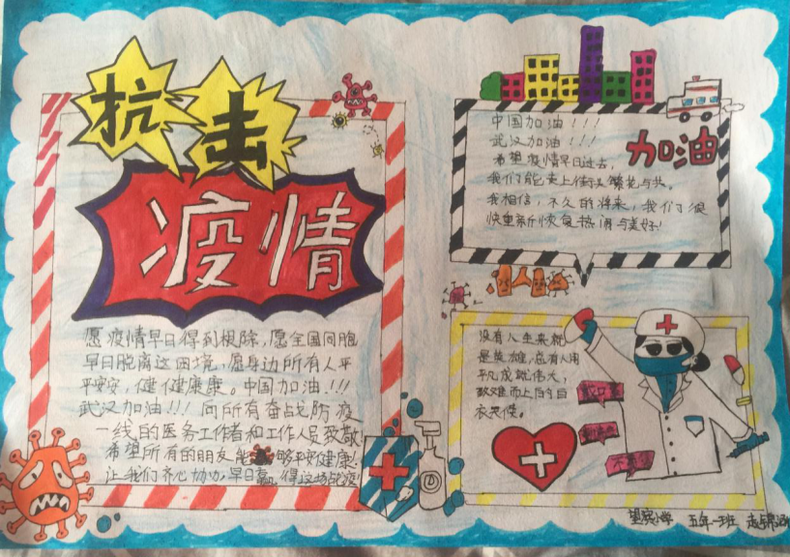 抗击
疫情
愿疫情早日得到根除,愿全国同胞
早日脱离这困境,愿身边所有人平
平安安,健健康康。中国加油!!!
武汉加油!!! 向所有奋战防疫
一线的医务工作者和工作人员致敬
希望所有的朋友能够平安健康!
让我们齐心协力,早日赢得这场战疫!
中国加油!!!
武汉加油!!!
希望疫情早日过去,
我们能走上街头繁花与共。
我相信,不久的将来,我们很
快重新恢复热闹与美好!
加油
没有人生来就
是英雄,总有人用
平凡成就伟大,
致难而上的白
衣天使。
戴口罩
勤洗手
不聚集
望 小学 五年一班